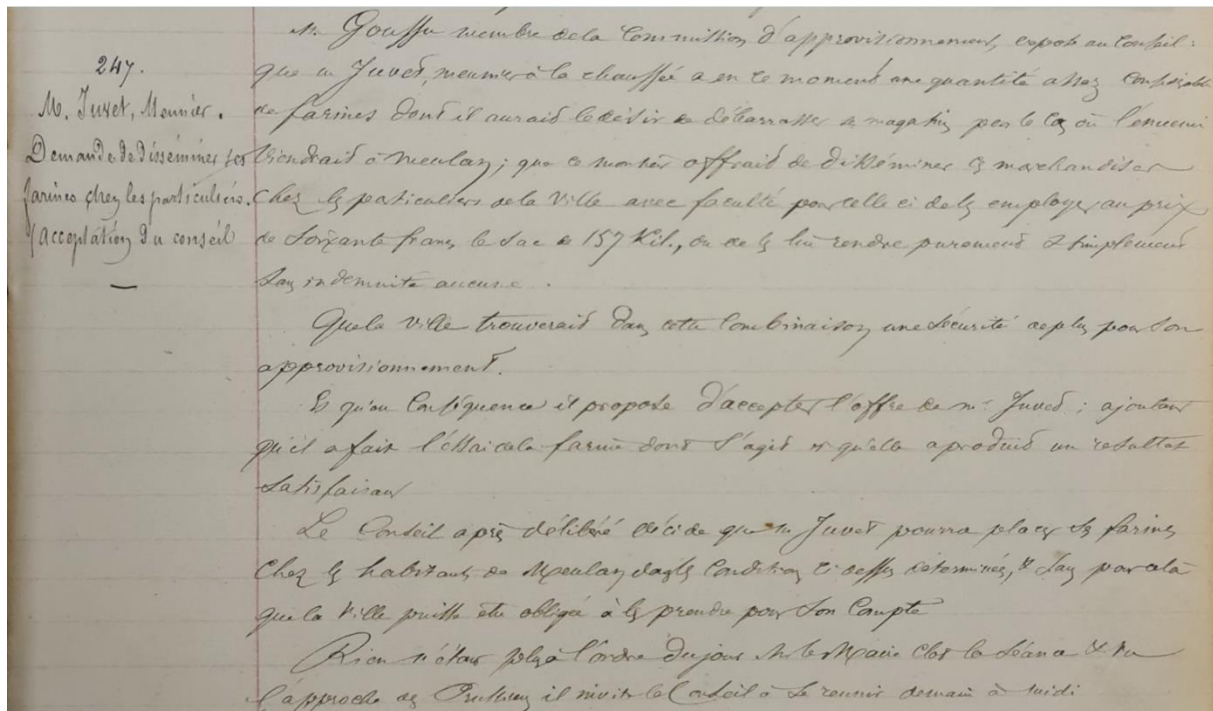 247.
M. Juvet, Meunier.
Demande de disséminer ses
farines chez les particuliers.
acceptation du conseil
M. Gouffu membre de la Commission d'approvisionnement, expose au Conseil :
que m Juvet, meunier à la chaussée a en ce moment une quantité assez considérable
de farines dont il aurait le désir de débarrasser ses magasins pour le cas où l'ennemi
viendrait à Meulan ; que ce meunier offrait de disséminer ses marchandises
chez les particuliers de la Ville avec faculté pour celle ci de les employer au prix
de soixante francs le sac de 157 Kil., ou de les lui rendre purement & simplement
sans indemnité aucune.
Que la ville trouverait dans cette Combinaison une sécurité de plus pour son
approvisionnement.
Et qu'en Conséquence il propose d'accepter l'offre de mr Juvet ; ajoutant
qu'il a fait l'essai de la farine dont s'agit et qu'elle a produit un résultat
satisfaisant
Le Conseil après délibéré décide que m Juvet pourra placer ses farines
chez les habitants de Meulan dans les Conditions ci dessus déterminées, & sans pour cela
que la Ville puisse être obligée à les prendre pour son Compte
Rien n'étant plus à l'ordre du jour M. le Maire clot la séance & vu
l'approche des Prussiens il invite le Conseil à se réunir demain à midi